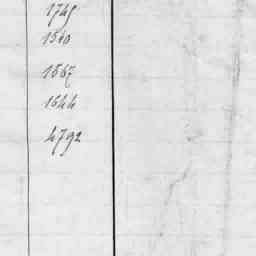 1745
1510
1567
1644
4792